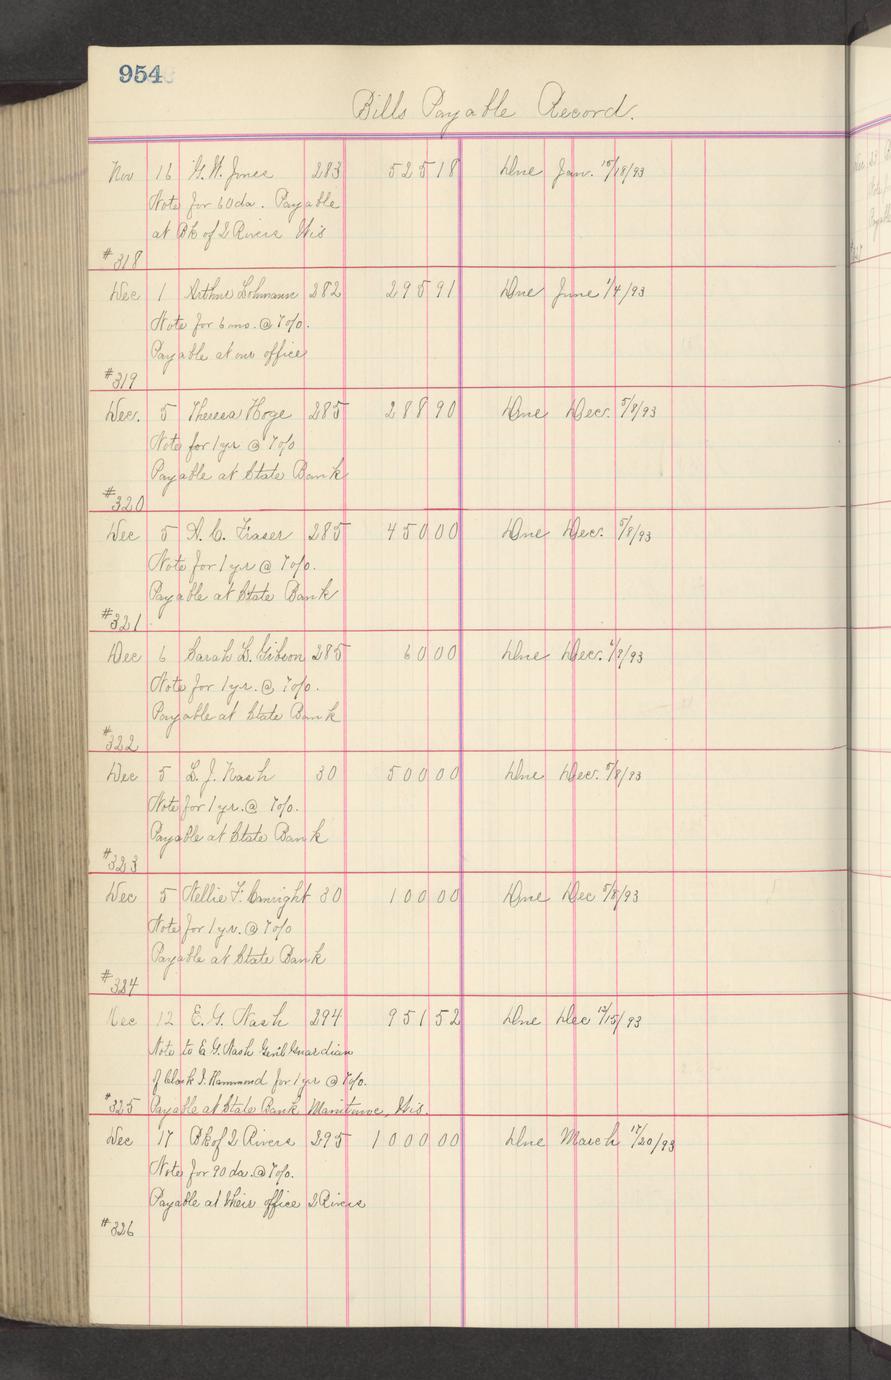 954
Bills Payable Record.
Nov 16 G. W. Jones 283 525 18 Due Jan. 15/18/93
Note for 60 da. Payable
at Bk of 2 Rivers Wis
#318
Dec 1 Arthur Lohmann 282 295 91 Due June 1/4/93
Note for 6 mo. @ 7%.
Payable at our office
#319
Dec. 5 Theresa Hoge 285 288 90 Due Dec. 5/8/93
Note for 1 yr @ 7%
Payable at State Bank
#320
Dec 5 A. C. Fraser 285 450 00 Due Dec. 5/8/93
Note for 1 yr @ 7%.
Payable at State Bank
#321
Dec 6 Sarah L. Gibson 285 60 00 Due Dec. 6/9/93
Note for 1 yr. @ 7%.
Payable at State Bank
#322
Dec 5 L. J. Nash 30 500 00 Due Dec. 5/8/93
Note for 1 yr. @ 7%.
Payable at State Bank
#323
Dec 5 Nellie F. Canright 30 100 00 Due Dec 5/8/93
Note for 1 yr. @ 7%
Payable at State Bank
#324
Dec 12 E. G. Nash 294 951 52 Due Dec 12/15/93
Note to E G. Nash Gen'l Guardian
of Clark I. Hammond for 1 yr @ 7%.
#325 Payable at State Bank Manitowoc, Wis.
Dec 17 Bk of 2 Rivers 295 1000 00 Due March 17/20/93
Note for 90 da. @ 7%.
Payable at their office 2 Rivers
#326